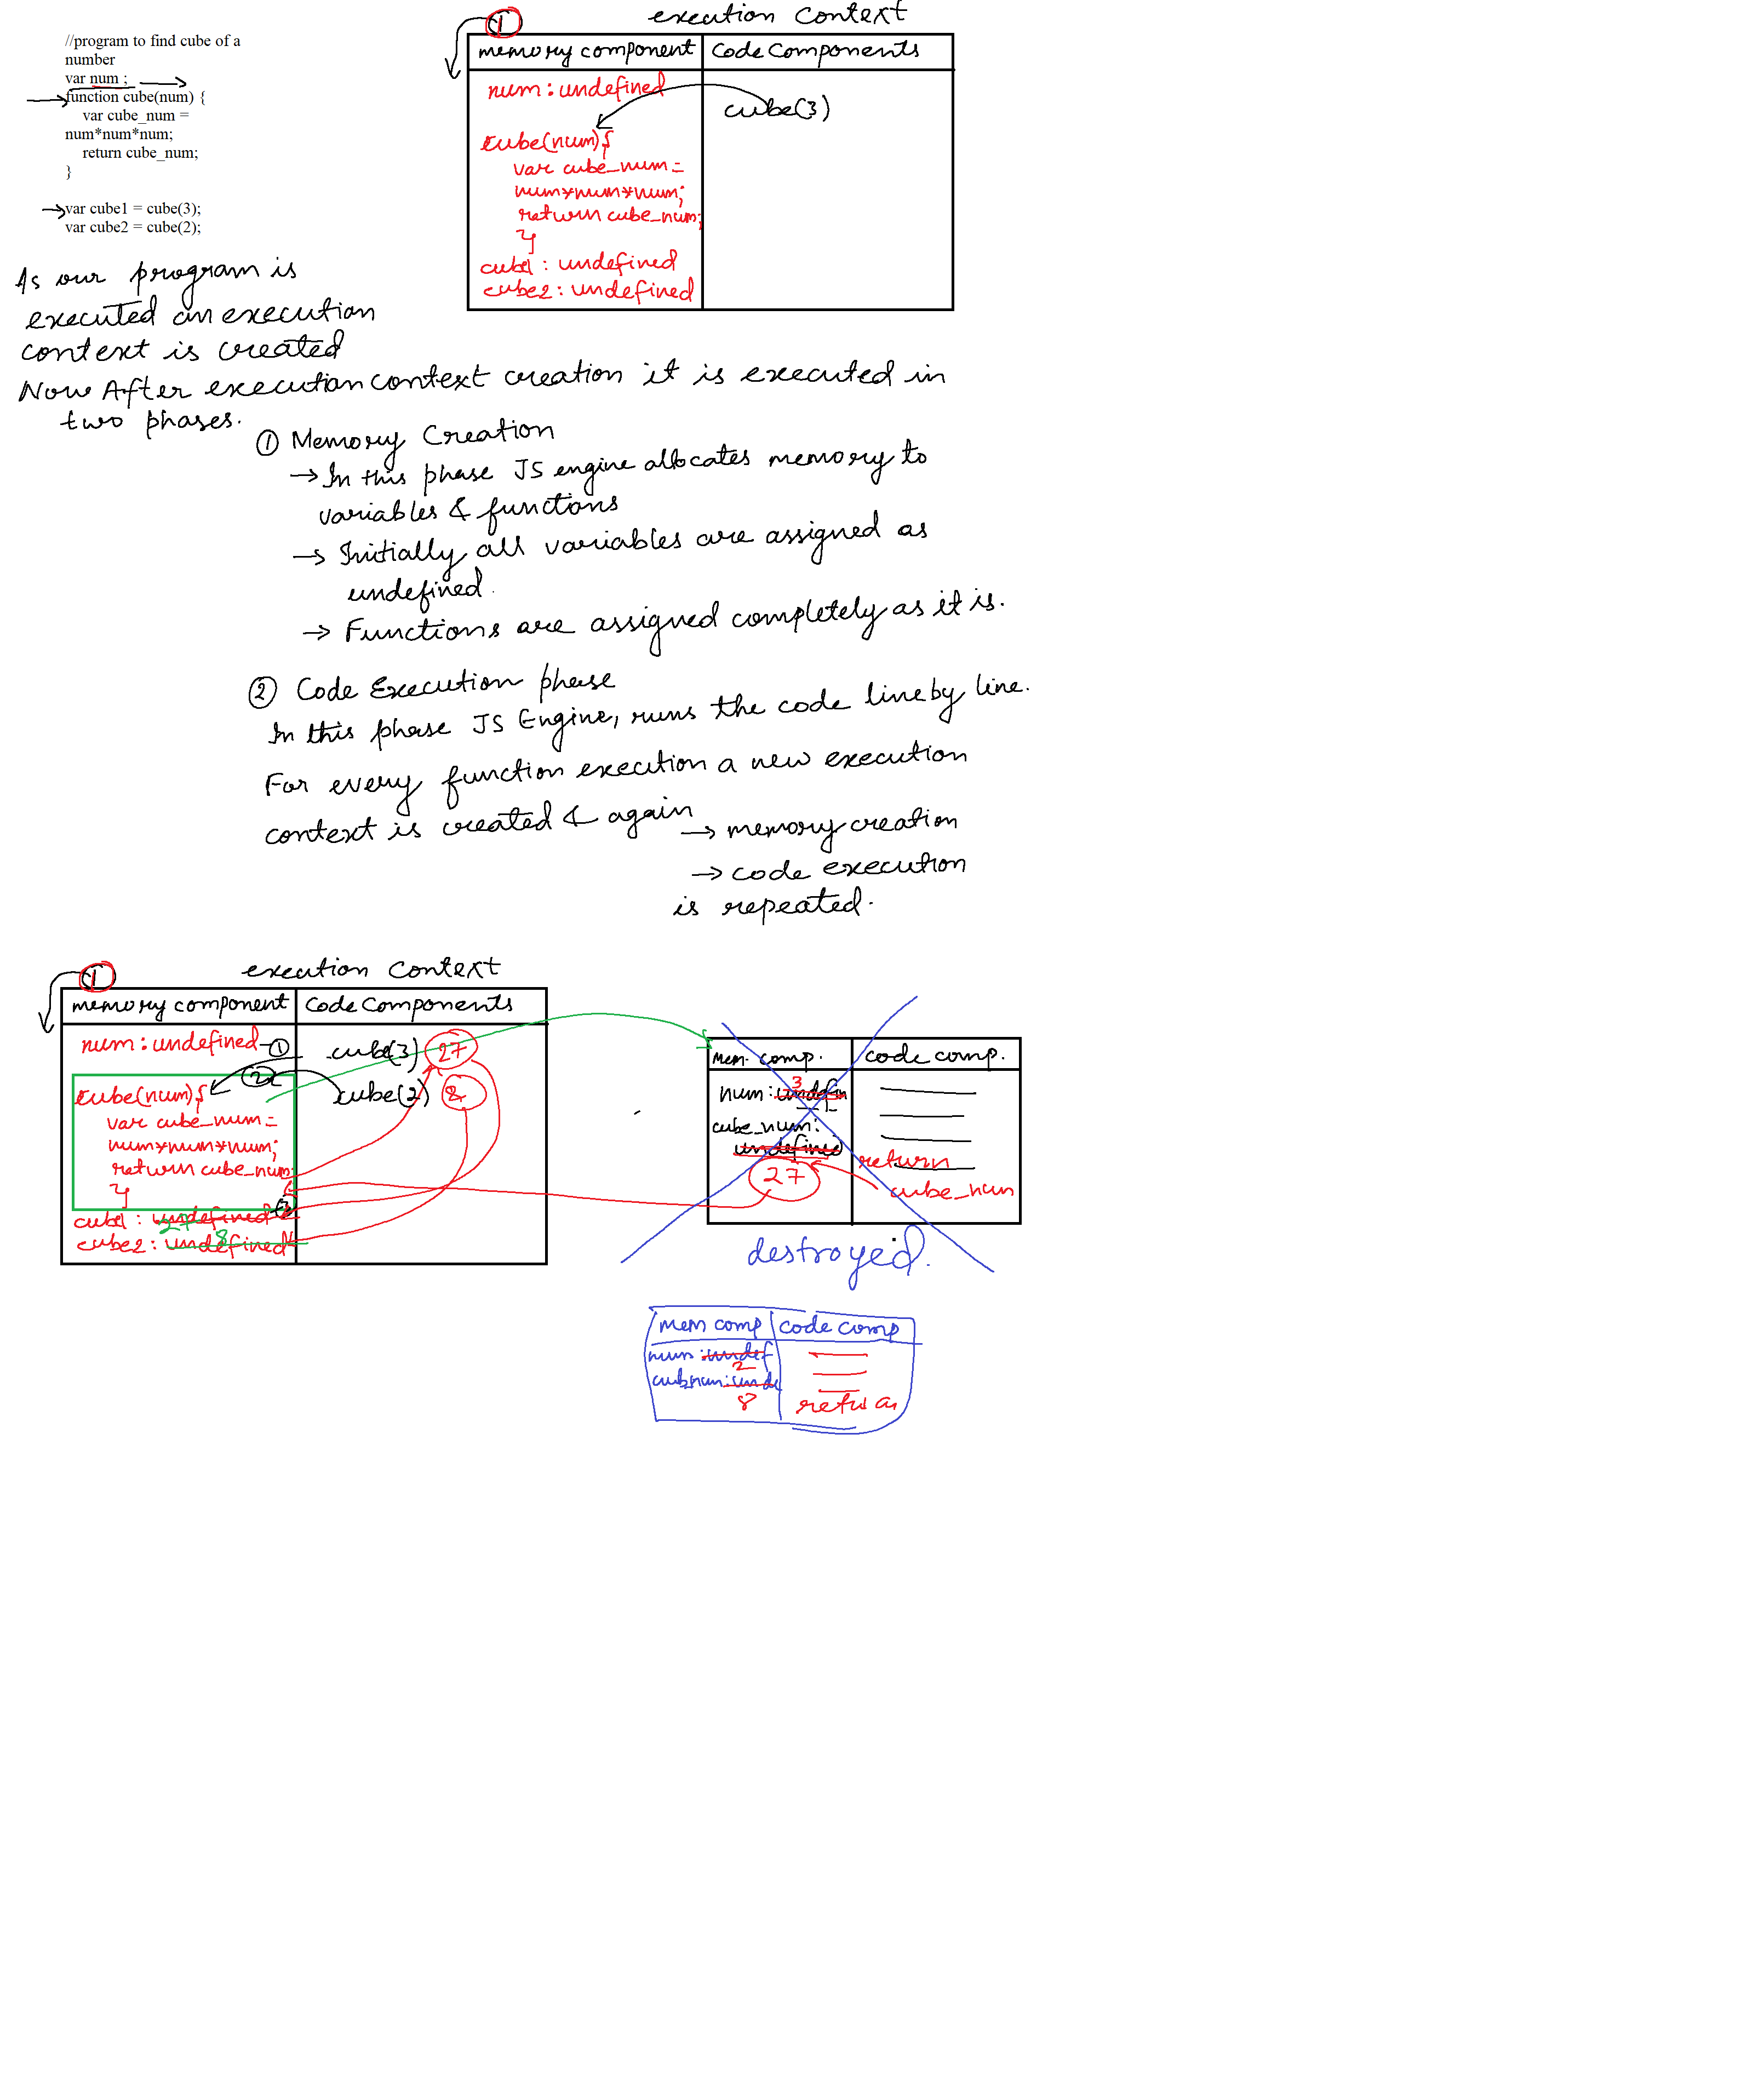 //program to find cube of a
number
var num ;
function cube(num) {
var cube_num =
num*num*num;
return cube_num;
}
var cube1 = cube(3);
var cube2 = cube(2);
1
execution context
memory component
Code Components
num : undefined
cube(3)
cube(num){
var cube_num =
num*num*num;
return cube_num;
}
cube1 : undefined
cube2 : undefined
As our program is
executed an execution
context is created
Now After execution context creation it is executed in
two phases.
① Memory Creation
→ In this phase JS engine allocates memory to
variables & functions
→ Initially all variables are assigned as
undefined.
→ Functions are assigned completely as it is.
② Code Execution phase
In this phase JS Engine, runs the code line by line.
For every function execution a new execution
context is created & again → memory creation
→ code execution
is repeated.
1
execution context
memory component
Code Components
num : undefined ①
cube(3) 27
②
cube(num){
cube(2) 8
var cube_num =
num*num*num;
return cube_num;
}
cube1 : undefined
27
cube2 : undefined
8
Mem. comp.
code comp.
num : undefin
3
cube_num :
undefined
27
return
cube_num
destroyed.
mem comp
code comp
num : undef
2
cubenum : unde
8
return